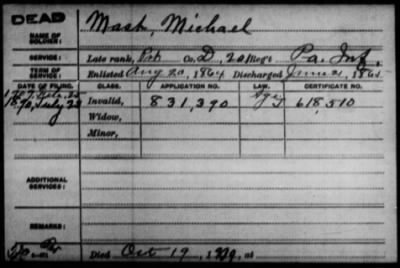 DEAD
NAME OF SOLDIER: Mash, Michael
SERVICE: Late rank, Pvt Co. D, 201 Reg't Pa. Inf.
TERM OF SERVICE: Enlisted Aug 20, 1864 Discharged June 21, 1865
DATE OF FILING. CLASS. APPLICATION NO. LAW. CERTIFICATE NO.
1890, July 28 Invalid, 831,390 618,510
Widow,
Minor,
ADDITIONAL SERVICES:
REMARKS:
Died Oct 19, at